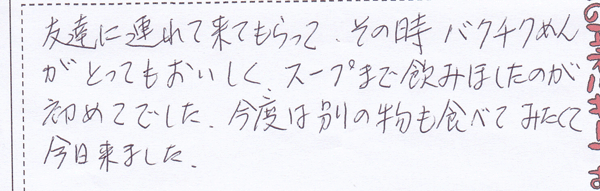 友達に連れて来てもらって、その時 バクチクめん
がとってもおいしく、スープまで飲みほしたのが
初めてでした。今度は別の物も食べてみたくて
今日来ました。